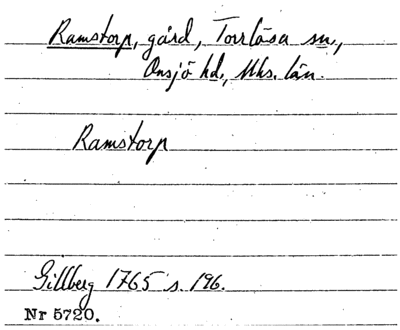 Ramstorp, gård, Torrlösa sn.,
Onsjö hd., Mhs. län.
Ramstorp
Gillberg 1765 s. 196.
Nr 5720.